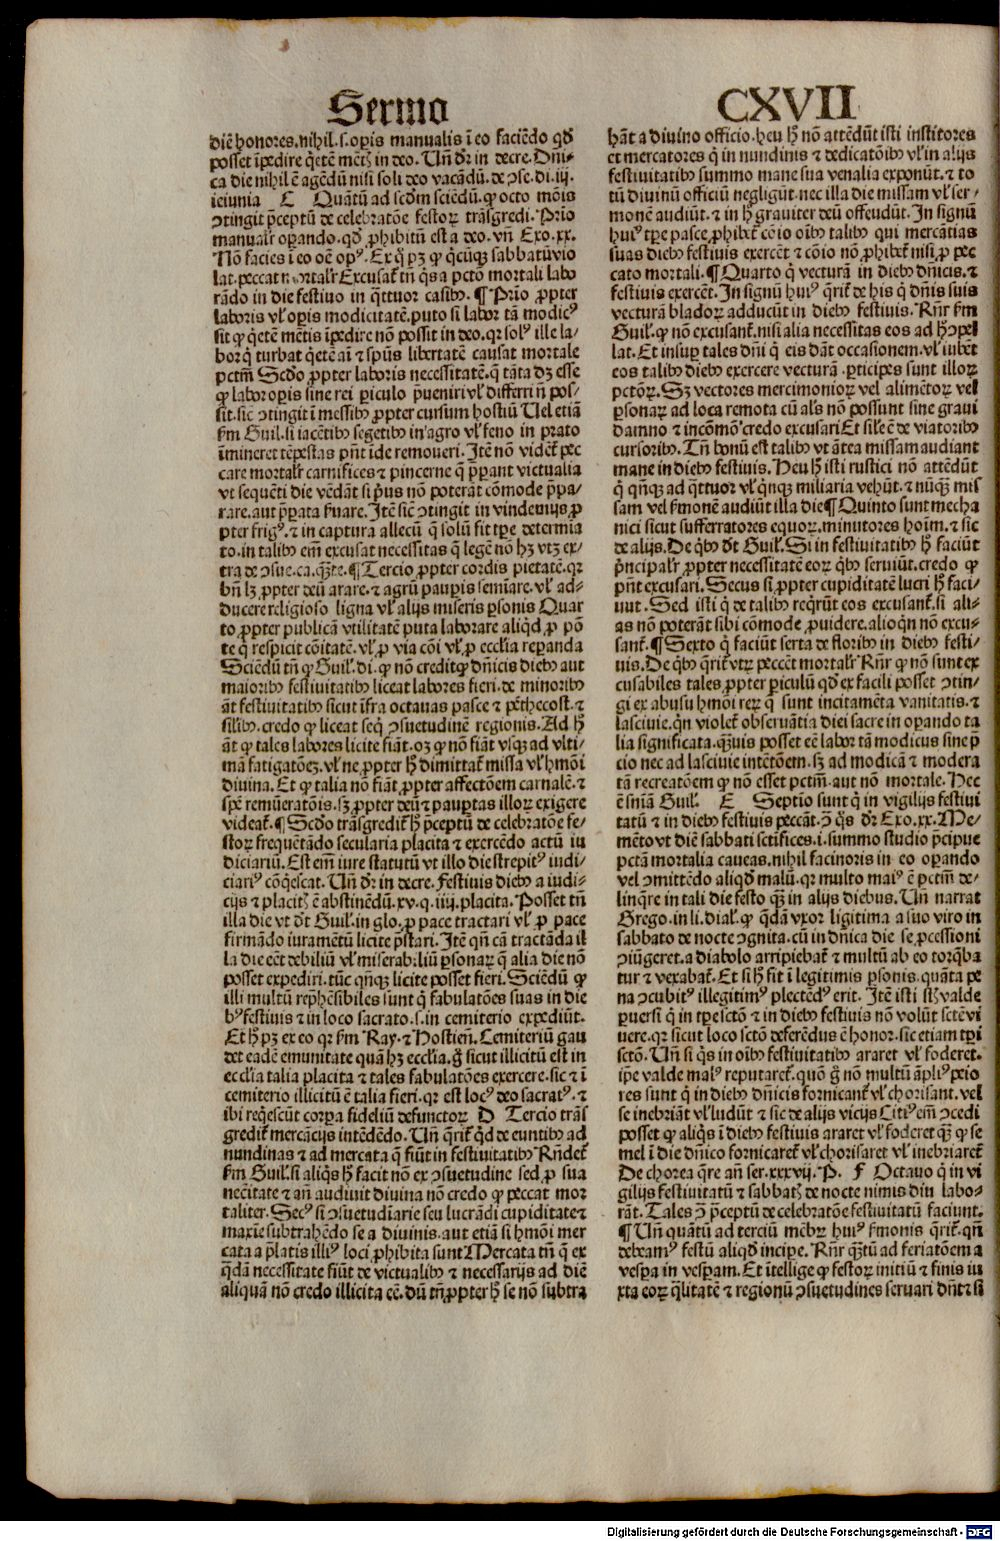 Sermo CXVII
diē honores. nihil .s. oꝑis manualis ī eo faciēdo qd̄
posset īpedire q̄etē mēt̄ꝭ in deo. Un̄ dr̄ in decre. Dn̄i-
ca die nihil ē agendū nisi soli deo vacādū. de ꝯse. di. iij.
ieiunia C Quātū ad scd̄m sciēdū. ꝙ octo mōis
ꝯtingit p̄ceptū de celebratōe festoꝝ trāsgredi. Prīo
manualr̄ oꝑando. qd̄ ꝓhibitū est a deo. vn̄ Exo. xx.
Nō facies ī eo oē opꝰ. Ex q̊ pꝫ ꝙ q̄cūqꝫ sabbatū vio
lat. peccat mortalr̄ Excusat̄ tn̄ q̄s a pctō mortali labo
rādo in die festiuo in q̄ttuor casibꝰ. ¶ Prīo ꝓpter
laboris vl̓ oꝑis modicitatē. puto si labor tā modicꝰ
sit ꝙ q̄etē mētis īpedire nō possit in deo. qꝛ solꝰ ille la-
bor q̇ turbat q̄etē aī ⁊ spūs libertatē causat mortale
pctm̄ Scd̓o ꝓpter laboris necessitatē. q̄ tāta dꝫ esse
ꝙ labor oꝑis sine rei ꝑiculo p̄ueniri vl̓ differri n̄ pos-
sit. sic ꝯtingit ī messibꝰ ꝓpter cursum hostiū Uel etiā
ẜm Guil. si iacētibꝰ segetibꝰ in agro vl̓ feno in prato
īmineret tēpestas pn̄t īde remoueri. Itē nō vidēt̄ pec
care mortalr̄ carnifices ⁊ pincerne q̇ p̄parant victualia
vt sequēti die vēdāt si pͥus nō poterāt cōmode p̄pa-
rare. aut p̄parata ẜuare. Itē sic ꝯtingit in vindemijs ꝓ
pter frigꝰ. ⁊ in captura allecū q̄ solū fit tꝑe determīa
to. in talibꝰ em̄ excusat necessitas q̄ legē nō hꝫ vtꝫ ex-
tra de ꝯsue. ca. q̄ꝫte. ¶ Tercio ꝓpter cordis pietatē. qꝛ
bn̄ lꝫ ꝓpter deū arare. ⁊ agrū pauꝑis semīare. vl̓ ad-
ducere religioso ligna vl̓ alijs miseris ꝑsonis Quar
to ꝓpter publicā vtilitatē puta laborare aliqd̄ ꝓ pō
te q̄ respicit cōitatē. vl̓ ꝓ via cōi vl̓ ꝓ eccl̓ia reꝑanda
Sciēdū tn̄ ꝙ Guil. di. ꝙ nō credit ꝙ dn̄icis diebꝰ aut
maioribꝰ festiuitatibꝰ liceat labores fieri. de minoribꝰ
āt festiuitatibꝰ sicut īfra octauas pasce ⁊ pēthecost. ⁊
sil̓ibꝰ. credo ꝙ liceat seq̇ ꝯsuetudinē regionis. Ad h̄
āt ꝙ tales labores licite fiāt. oꝫ ꝙ nō fiāt vsqꝫ ad vlti-
mā fatigatōeꝫ. vl̓ ne ꝓpter h̄ dimittat̄ missa vl̓ hmōi
diuina. Et ꝙ talia nō fiāt ꝓpter affectōem carnalē. ⁊
spē remūeratōis. sꝫ ꝓpter deū ⁊ pauꝑtas illoꝝ exigere
videat̄. ¶ Scd̓o trāsgredit̄ h̄ p̄ceptū de celebratōe fe-
stoꝝ frequētādo secularia placita ⁊ exercēdo actū iu
diciariū. Est em̄ iure statutū vt illo die strepitꝰ iudi-
ciariꝰ cōq̄escat. Un̄ dr̄ in decre. Festiuis diebꝰ a iudi-
cijs ⁊ placitꝭ ē abstinēdū. xv. q. iiij. placita. Posset tn̄
illa die vt dt̄ Guil. in glo. ꝓ pace tractari vl̓ ꝓ pace
firmādo iuramētū licite p̄stari. Itē qn̄ cā tractāda il
la die eēt debiliū vl̓ miserabiliū ꝑsonaꝝ q̄ alia die nō
posset expediri. tūc qn̄qꝫ licite posset fieri. Sciēdū ꝙ
illi multū rep̄hēsibiles sunt q̇ fabulatōes suas in die
bꝰ festiuis ⁊ in loco sacrato .s. in cemiterio expediūt.
Et h̄ pꝫ ex eo qꝛ ẜm Ray. ⁊ Hostien̄. Cemiteriū gau
det eadē emunitate quā hꝫ eccl̓ia. g̊ sicut illicitū est in
eccl̓ia talia placita ⁊ tales fabulatōes exercere. sic ⁊ ī
cemiterio illicitū ē talia fieri. qꝛ est locꝰ deo sacratꝰ. ⁊
ibi reqͥescūt corꝑa fideliū defunctoꝝ D Tercio trās
gredit̄ mercācijs intēdēdo. Un̄ q̄rit̄ qͥd de euntibꝰ ad
nundinas ⁊ ad mercata q̄ fiūt in festiuitatibꝰ Rn̄det̄
ẜm Guil. si aliqͥs h̄ facit nō ex ꝯsuetudine sed ꝓ sua
nec̄itate ⁊ an̄ audiuit diuina nō credo ꝙ peccat mor
taliter. Secꝰ si ꝯsuetudīarie seu lucrādi cupiditate ⁊
maxīe subtrahēdo se a diuinis. aut etiā si hmōi mer
cata a p̄latis illiꝰ loci ꝓhibita sunt Mercata tn̄ q̄ ex
q̄dā necessitate fiūt de victualibꝰ ⁊ necessarijs ad diē
aliquā nō credo illicita eē. dū tn̄ ꝓpter h̄ se nō subtra
hāt a diuino officio. heu h̄ nō attēdūt isti institores
et mercatores q̇ in nundinis ⁊ dedicatōibꝰ vl̓ in alijs
festiuitatibꝰ summo mane sua venalia exponūt. ⁊ to
tū diuinū officiū negligūt. nec illa die missam vl̓ ser-
monē audiūt. ⁊ in h̄ grauiter deū offendūt. In signū
huiꝰ tꝑe pasce ꝓhibet̄ cōio oībꝰ talibꝰ qui mercātias
suas diebꝰ festiuis exercēt ⁊ cōio nō ꝓhibet̄ nisi ꝓ pec
cato mortali. ¶ Quarto q̇ vecturā in diebꝰ dn̄icis. ⁊
festiuis exercēt. In signū huiꝰ q̄rit̄ de his q̇ dn̄is suis
vecturā bladoꝝ adducūt in diebꝰ festiuis. Rn̄r ẜm
Guil. ꝙ nō excusant̄. nisi alia necessitas eos ad h̄ ꝯpel
lat. Et insuꝑ tales dn̄i q̇ eis dāt occasionem. vl̓ iubēt
eos talibꝰ diebꝰ exercere vecturā. ꝑticipes sunt illoꝝ
pctōꝝ. Sꝫ vectores mercimonioꝝ vel alimētoꝝ vel
ꝑsonaꝝ ad loca remota cū als̄ nō possunt sine graui
damno ⁊ incōmō credo excusari Et sil̓e ē de viatoribꝰ
cursoribꝰ. Tn̄ bonū est talibꝰ vt ātea missam audiant
mane in diebꝰ festiuis. Heu h̄ isti rustici nō attēdūt
q̇ qn̄qꝫ ad q̄ttuor vl̓ qͥnqꝫ miliaria vehūt. ⁊ nūqꝫ mis
sam vel ẜmonē audiūt illa die ¶ Quinto sunt mecha
nici sicut sufferratores equoꝝ. minutores hoīm. ⁊ sic
de alijs. De qͥbꝰ dt̄ Guil. Si in festiuitatibꝰ h̄ faciūt
pͥncipalr̄ ꝓpter necessitatē eoꝝ qͥbꝰ seruiūt. credo ꝙ
pn̄t excusari. Secus si ꝓpter cupiditatē lucri h̄ faci-
unt. Sed isti q̇ de talibꝰ reqͥrūt eos excusant̄. si ali-
as nō poterāt sibi cōmode ꝓuidere. alioqͥn nō excu-
sant̄. ¶ Sexto q̇ faciūt serta de floribꝰ in diebꝰ festi-
uis. De qͥbꝰ q̄rit̄ vtꝝ peccēt mortalr̄ Rn̄r ꝙ nō sunt ex
cusabiles tales ꝓpter ꝑiculū qd̄ ex facili posset ꝯtin-
gi ex abusu hmōi reꝝ q̄ sunt incitamēta vanitatis. ⁊
lasciuie. qͥn violet̄ obseruātia diei sacre in oꝑando ta
lia significata. q̄ꝫuis posset eē labor tā modicus sine p̄
cio nec ad lasciuie intētōem. sꝫ ad modicā ⁊ modera
tā recreatōem ꝙ nō esset pctm̄. aut nō mortale. Hec
ē snīa Guil. E Septīo sunt q̇ in vigilijs festiui
tatū ⁊ in diebꝰ festiuis peccāt. ꝯ̄ q̊s dr̄ Exo. xx. Me-
mēto vt diē sabbati sctīfices. i. summo studio p̄cipue
pctā mortalia caueas. nihil facinoris in eo oꝑando
vel ꝯmittēdo aliqd̄ malū. qꝛ multo maiꝰ ē pctm̄ de-
linq̄re in tali die festo q̄ꝫ in alijs diebus. Un̄ narrat
Grego. in li. dial̓. ꝙ q̄dā vxor ligitima a suo viro in
sabbato de nocte ꝯgnita. cū in dn̄ica die se ꝓcessioni
ꝯiūgeret. a diabolo arripiebat̄ ⁊ multū ab eo torq̄ba
tur ⁊ vexabat̄. Et si h̄ fit ī legitimis ꝑsonis. quāta pe
na ꝯcubitꝰ illegitimꝰ plectēdꝰ erit. Itē isti sil̓r valde
ꝑuersi q̇ in tꝑe sctō ⁊ in diebꝰ festiuis nō volūt sctē vi
uere. qꝛ sicut loco sctō deferēdus ē honor. sic etiam tꝑi
sctō. Un̄ si qͥs in oībꝰ festiuitatibꝰ araret vl̓ foderet.
ip̄e valde malꝰ reputaret̄. quō g̊ nō multū āpliꝰ peio
res sunt q̇ in diebꝰ dn̄icis fornicant̄ vl̓ chorisant. vel
se inebriāt vl̓ ludūt ⁊ sic de alijs vicijs Citiꝰ em̄ ꝯcedi
posset ꝙ aliqͥs ī diebꝰ festiuis araret vl̓ foderet q̄ꝫ ꝙ se
mel ī die dn̄ico fornicaret̄ vl̓ chorisaret vl̓ inebriaret̄
De chorea q̄re an̄ ser. xxxvij. P. F Octauo q̇ in vi
gilijs festiuitatū ⁊ sabbatꝭ de nocte nimis diu labo-
rāt. Tales ꝯ̄ p̄ceptū de celebratōe festiuitatū faciunt.
¶ Un̄ quātū ad terciū mēbꝝ huiꝰ ẜmonis q̄rit̄. qn̄
debeamꝰ festū aliqd̄ incipe. Rn̄r q̄ꝫtū ad feriatōem a
vesꝑa in vesꝑam. Et ītellige ꝙ festoꝝ initiū ⁊ finis iu
xta eoꝝ q̄litatē ⁊ regionū ꝯsuetudines seruari dn̄t ⁊ si
Digitalisierung gefördert durch die Deutsche Forschungsgemeinschaft - DFG